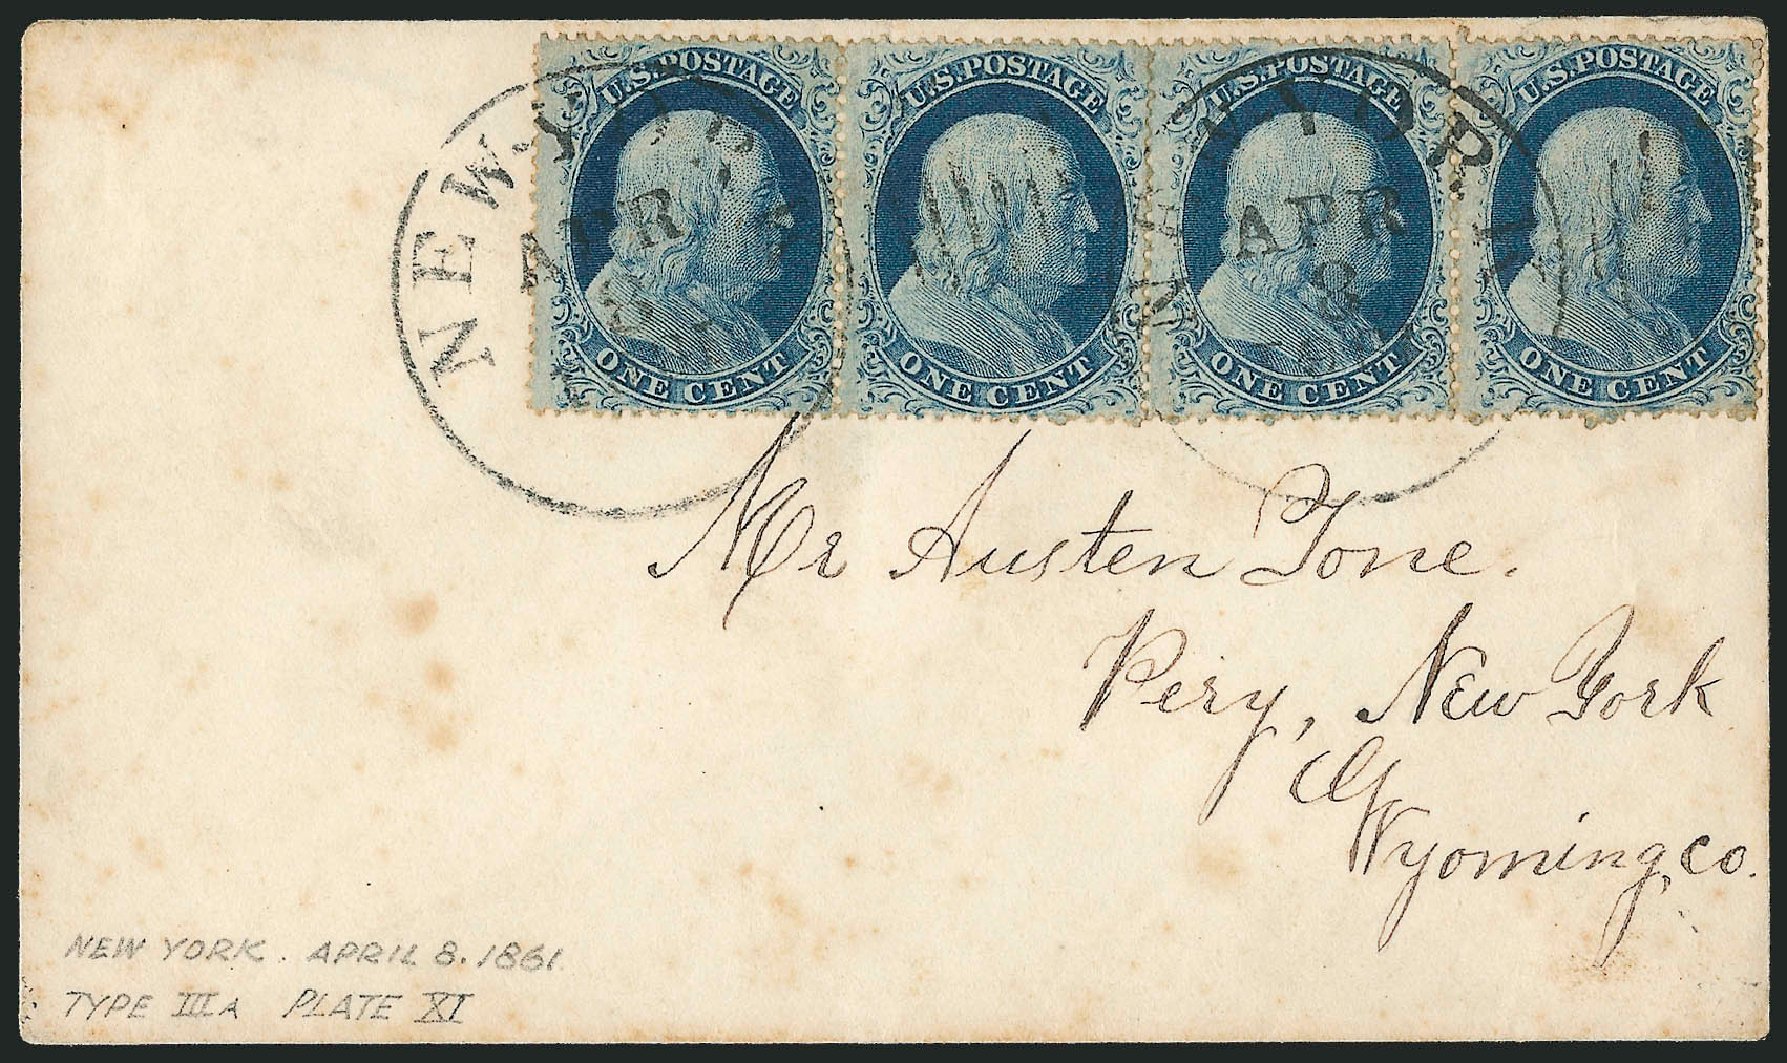 U.S. POSTAGE U.S. POSTAGE U.S. POSTAGE U.S. POSTAGE
NEW-YORK NEW-YORK
APR APR
8 8
ONE CENT ONE CENT ONE CENT ONE CENT
Mr Austen Tone.
Pery, New York
Wyoming, Co.
NEW YORK. APRIL 8. 1861
TYPE III A PLATE XI